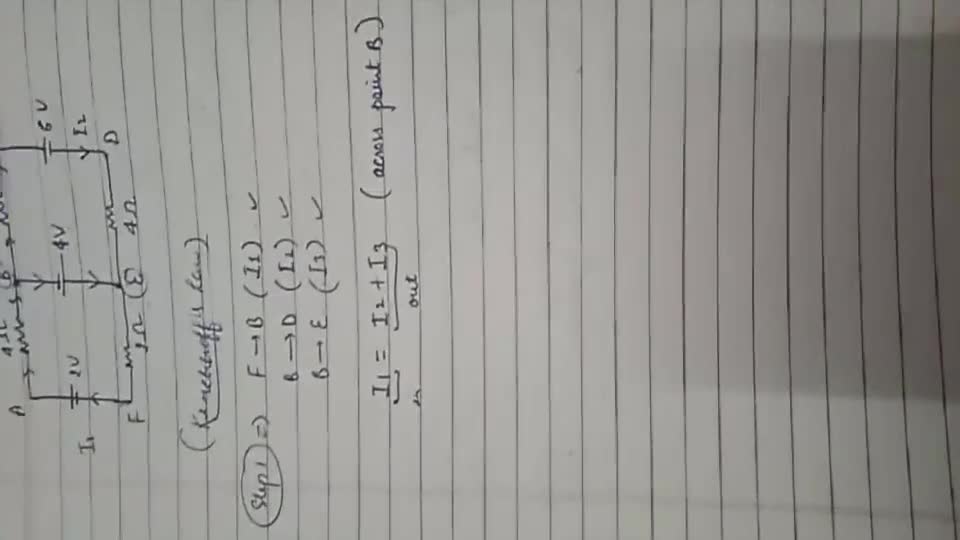 A B
2V 4V 6V
I1 I2
F 2Ω E 4Ω D
(Kirchhoff's law)
Step1 ⇒ F → B (I1) ✓
B → D (I2) ✓
B → E (I3) ✓
I1 = I2 + I3 (across point B)
in out